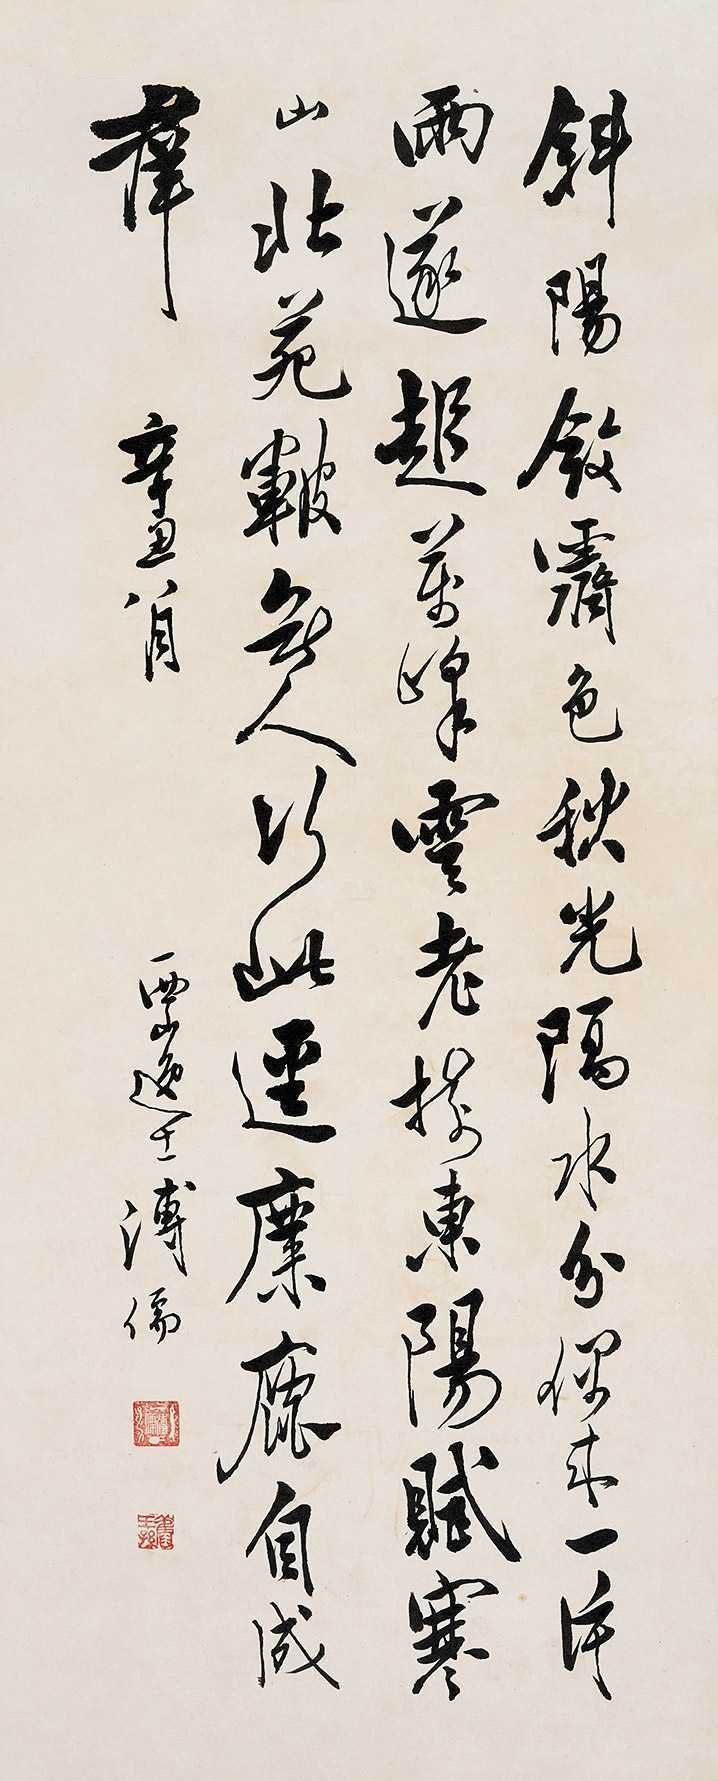 斜陽斂霽色秋光隔水分偶來一片
雨遂起萬峯雲老樹東陽賦寒
山北苑皴無人行此逕麋鹿自成
羣
辛丑八月
西山逸士溥儒
舊王孫